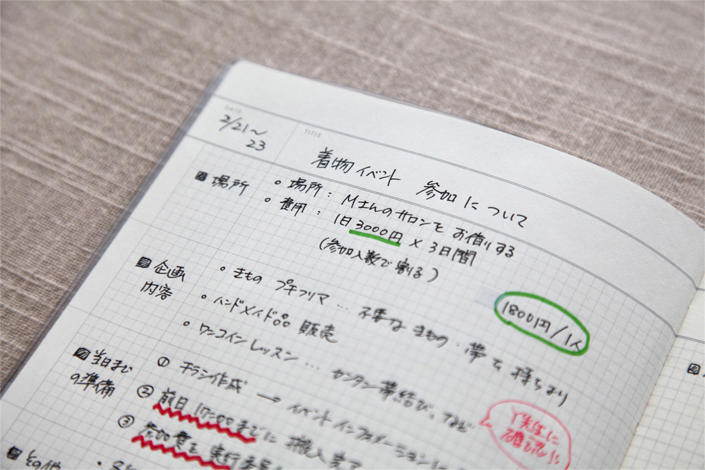 DATE
2/21〜
23
TITLE
着物イベント 参加について
場所
・場所：Mさんのサロンをお借りする
・費用：1日3000円×3日間
（参加人数で割る）
1800円/1人
企画
内容
・きもの プチフリマ… 不要なきもの・帯を持ちより
・ハンドメイド品 販売
・ワンコインレッスン… カンタン帯結び、など
当日まで
の準備
① チラシ作成 → イベントインフォメーションに
② 前日17:00までに搬入完了
③ 参加費を
Y先生に
確認
その他